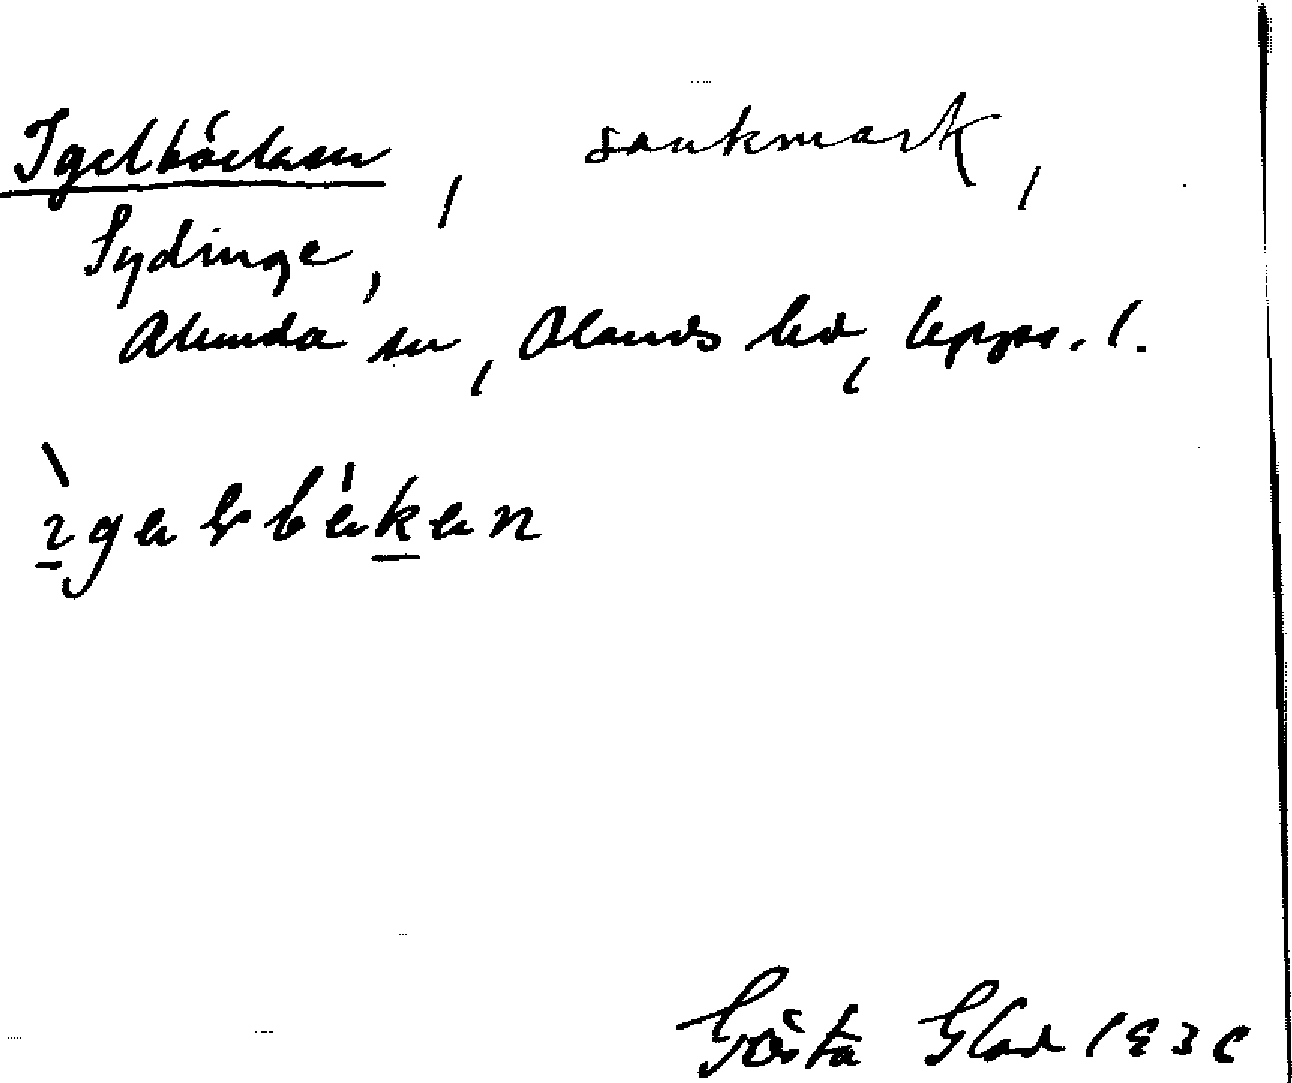 Igelbäcken, sankmark,
Sydinge,
Alunda sn, Olands hd, Upps. l.
Gösta Glad 1936